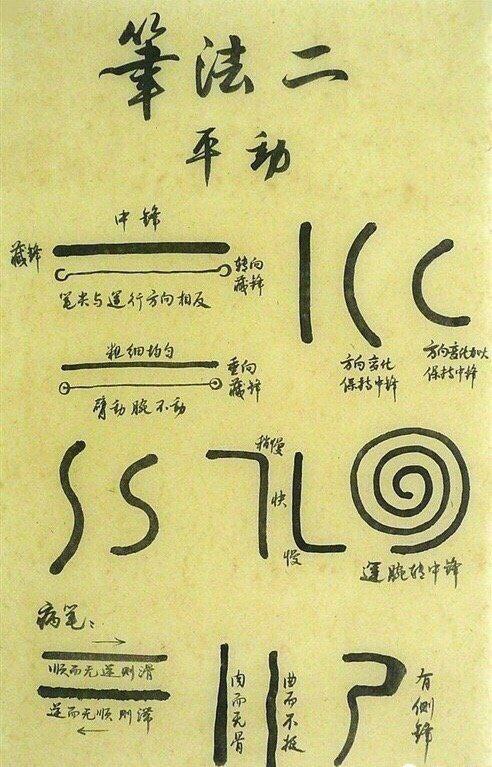 筆法二
平動
中锋
藏锋
转向
藏锋
笔尖与运行方向相反
粗细均匀
垂向
藏锋
臂动腕不动
方向变化
保持中锋
方向变化加大
保持中锋
稍慢
快
慢
运腕转中锋
病笔：
顺而无逆则滑
逆而无顺则滞
肉而无骨
曲而不挺
有侧锋